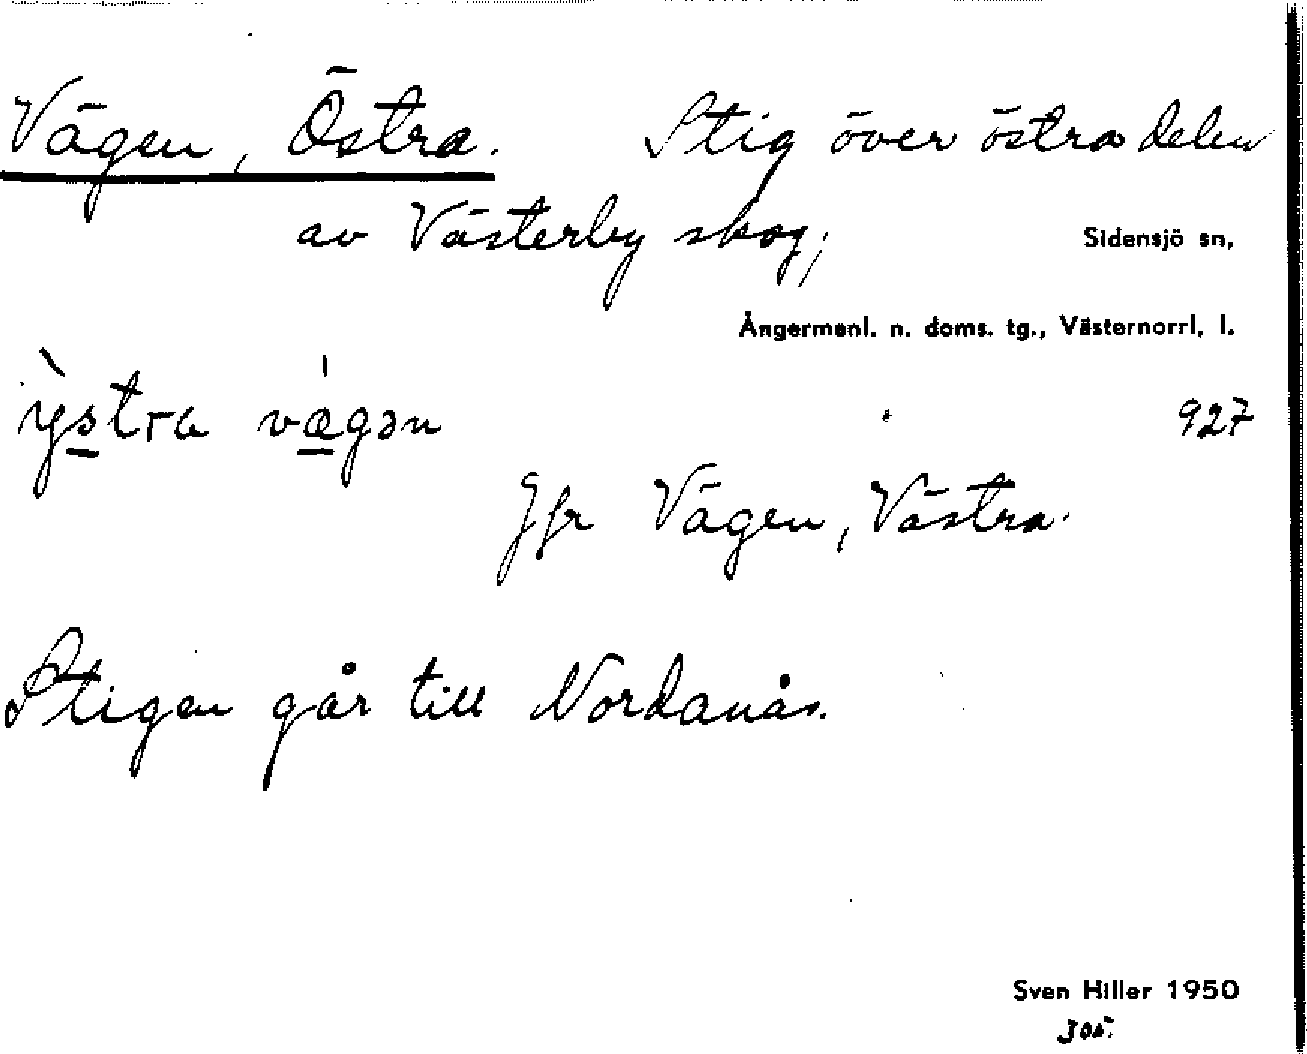 Vägen, Östra. Stig över östra delen
av Västerby skog;
Sidensjö sn,
Ångermanl. n. doms. tg., Västernorrl. l.
ỳstra vǽgən
927
Jfr Vägen, Västra.
Stigen går till Nordanås.
Sven Hiller 1950